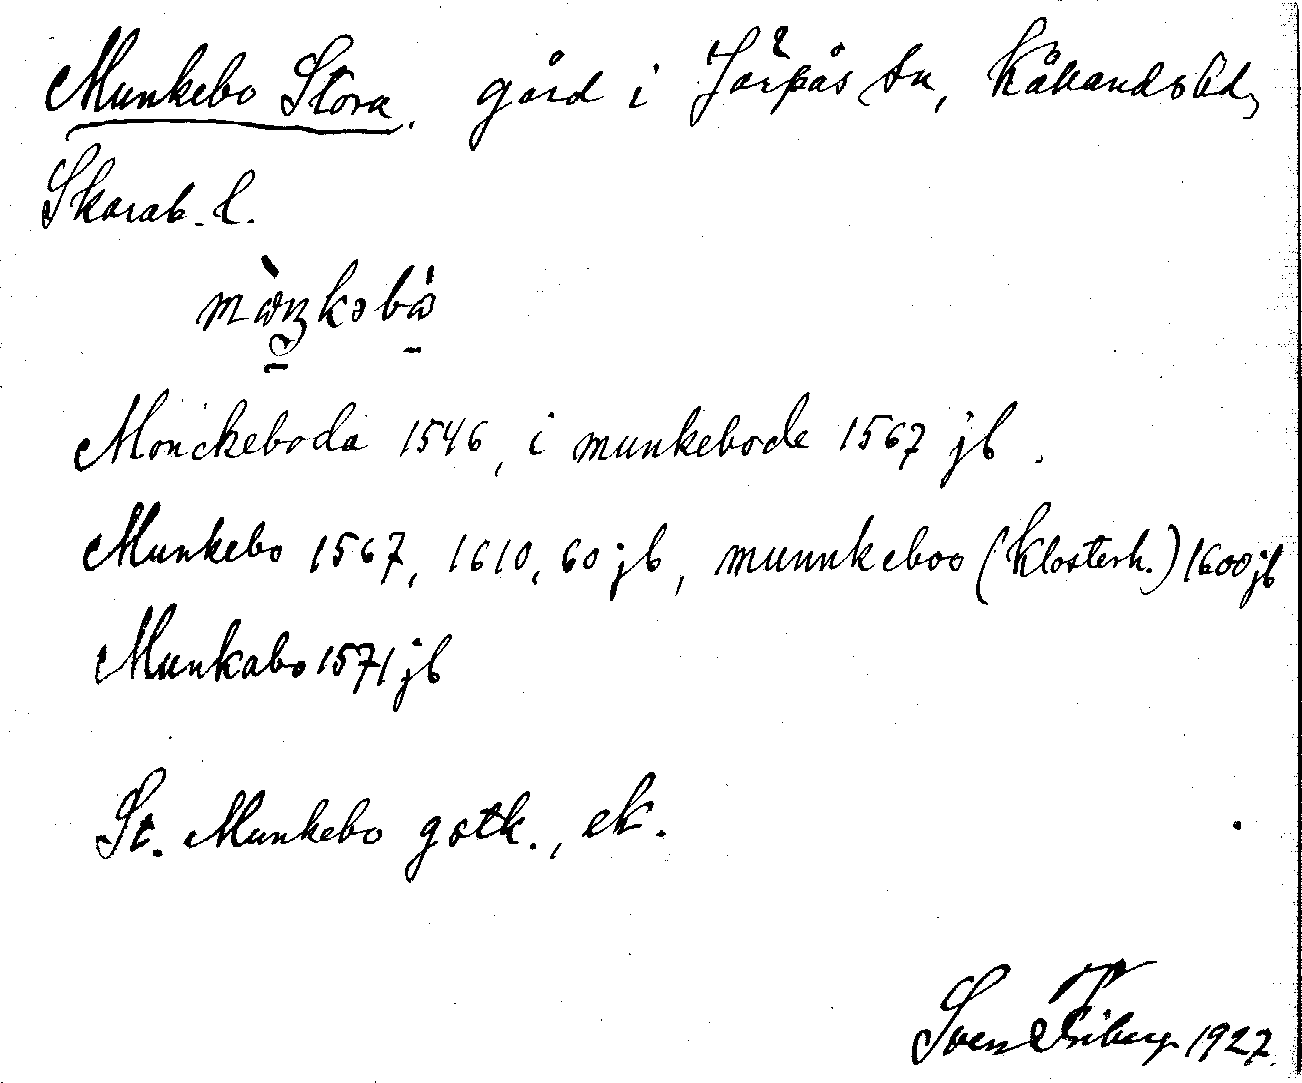 Munkebo Stora. gård i Järpås sn, Kåkands hd,
Skarab. l.
Monckeboda 1546, i munkebode 1567 jb.
Munkebo 1567, 1610, 60 jb, munnkeboo (Klosterh.) 1600 jb
Munkabo 1571 jb
St. Munkebo gstk., ek.
Sven Friberg 1927.